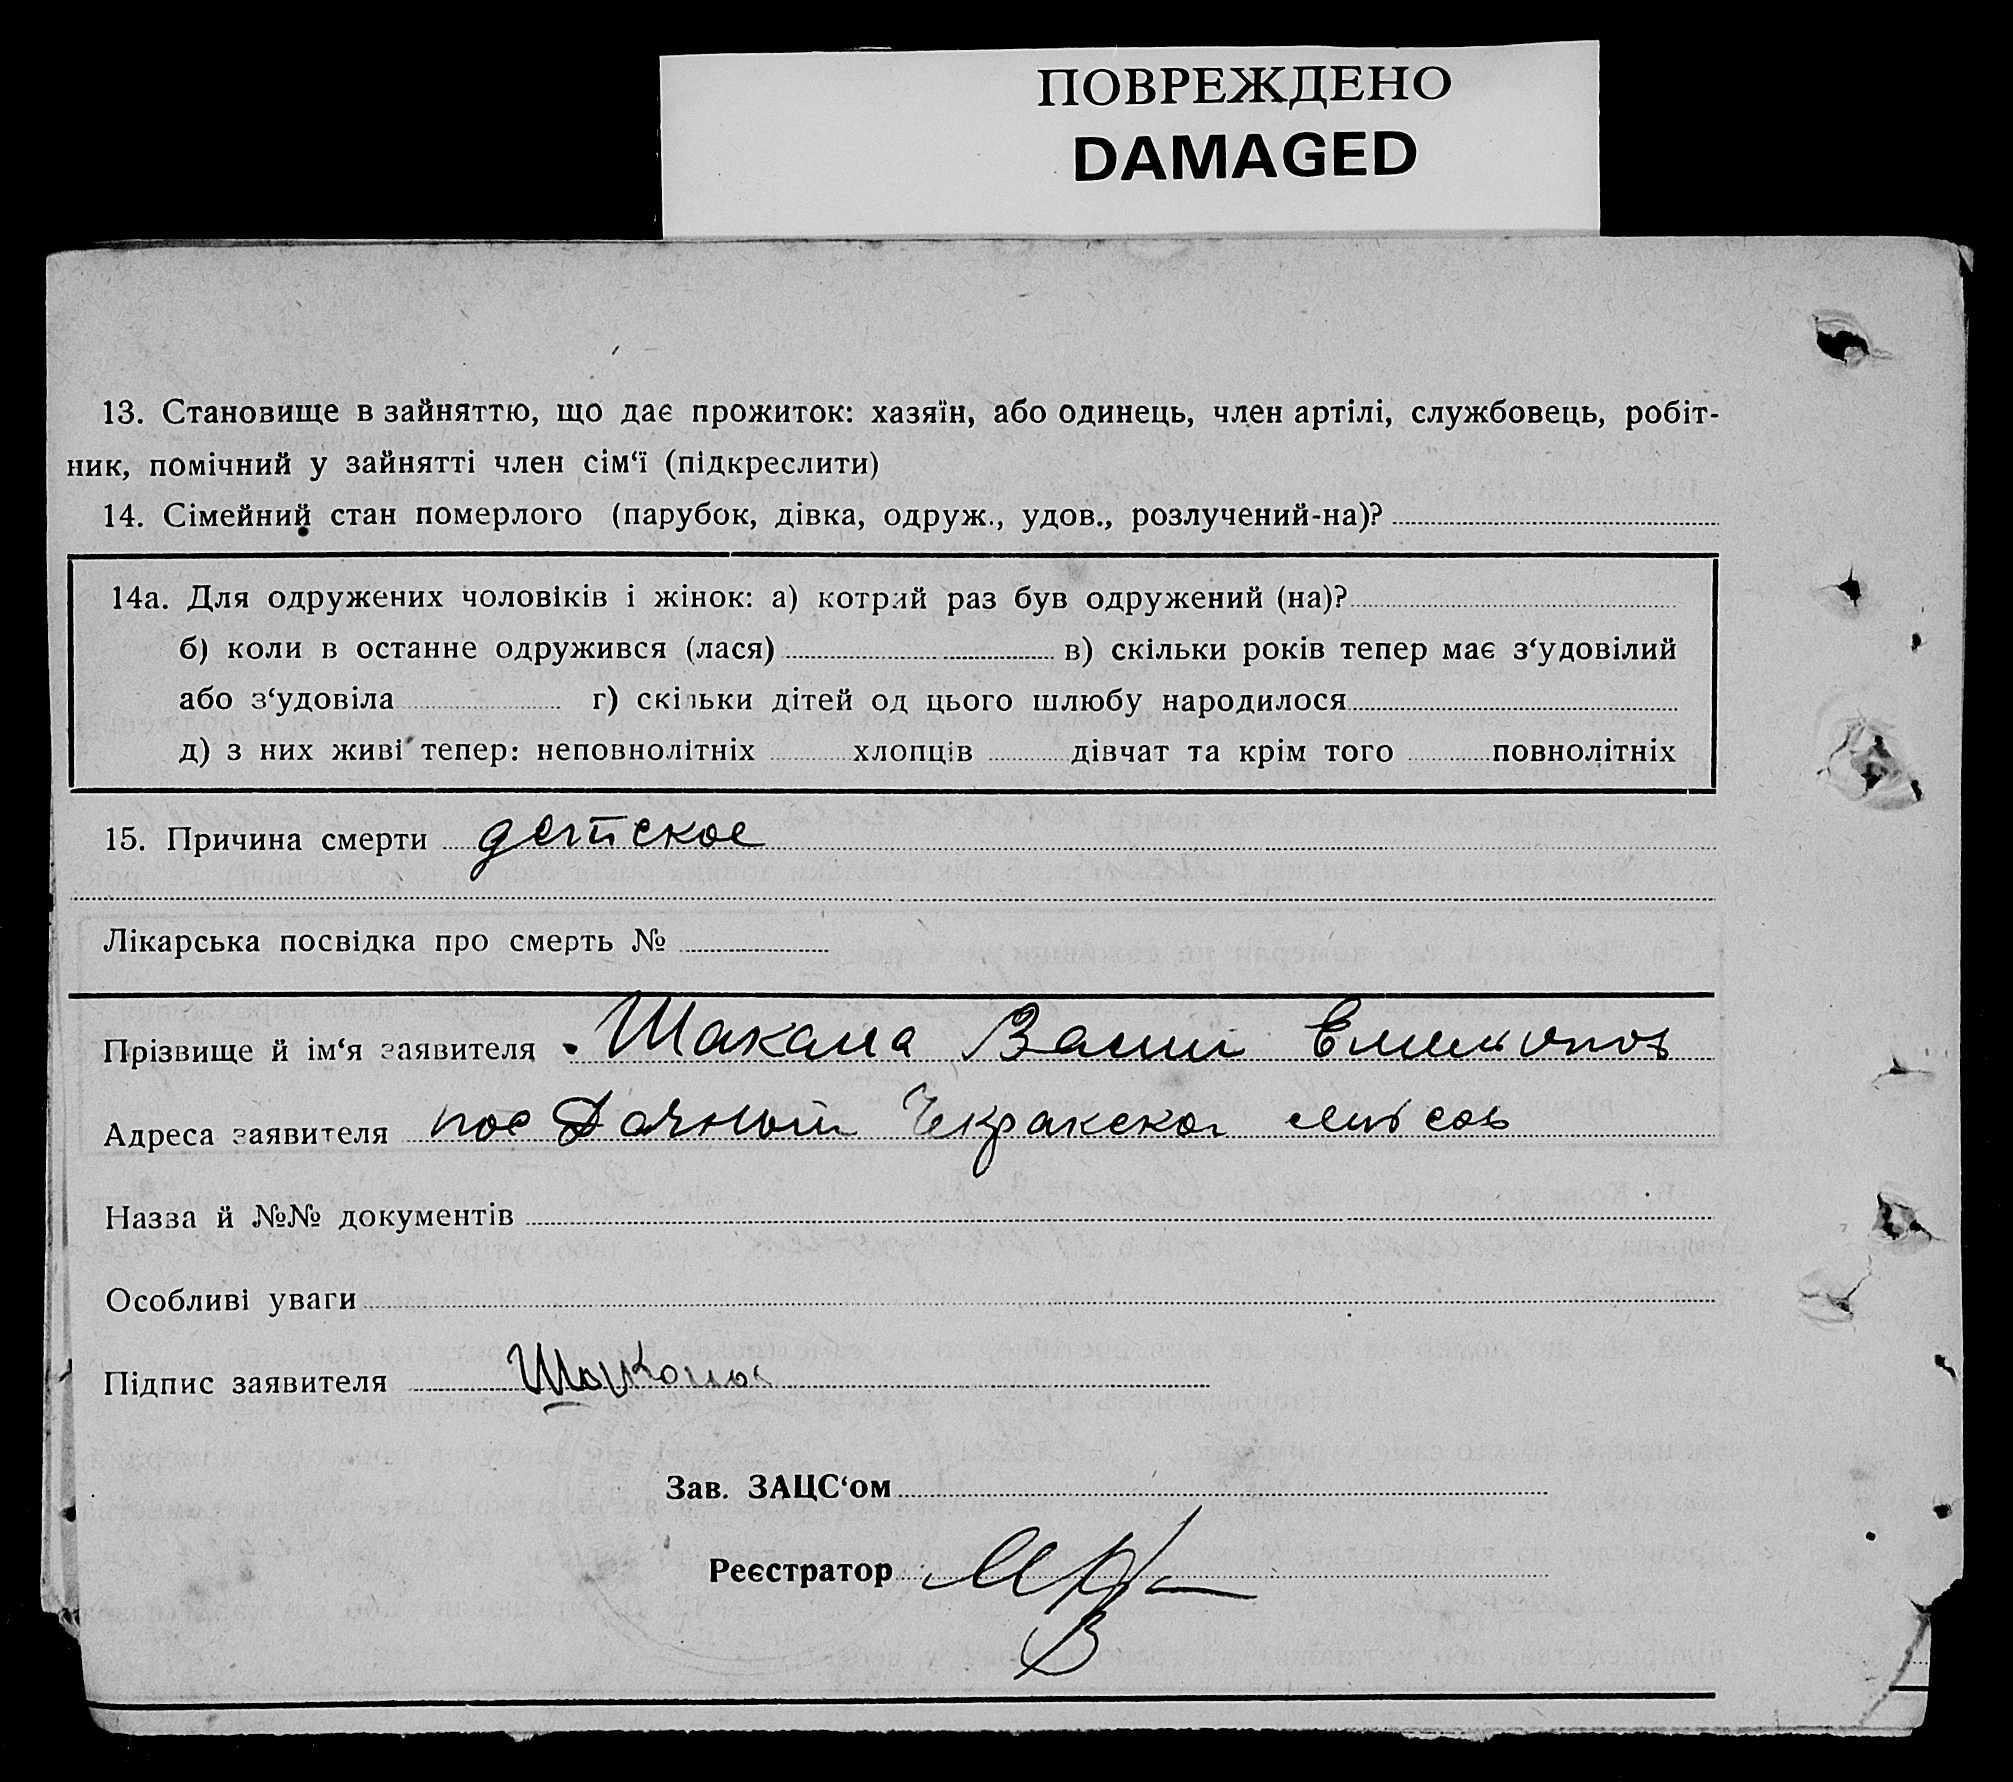 ПОВРЕЖДЕНО
DAMAGED
13. Становище в зайняттю, що дає прожиток: хазяїн, або одинець, член артілі, службовець, робіт-
ник, помічний у зайнятті член сім‘ї (підкреслити)
14. Сімейний стан померлого (парубок, дівка, одруж., удов., розлучений-на)?
14а. Для одружених чоловіків і жінок: а) котрий раз був одружений (на)?
б) коли в останне одружився (лася) в) скільки років тепер має з‘удовілий
або з‘удовіла г) скільки дітей од цього шлюбу народилося
д) з них живі тепер: неповнолітніх хлопців дівчат та крім того повнолітніх
15. Причина смерти детское
Лікарська посвідка про смерть №
Прізвище й ім‘я заявителя
Адреса заявителя пос Дачный
Назва й №№ документів
Особливі уваги
Підпис заявителя
Зав. ЗАЦС‘ом
Реєстратор